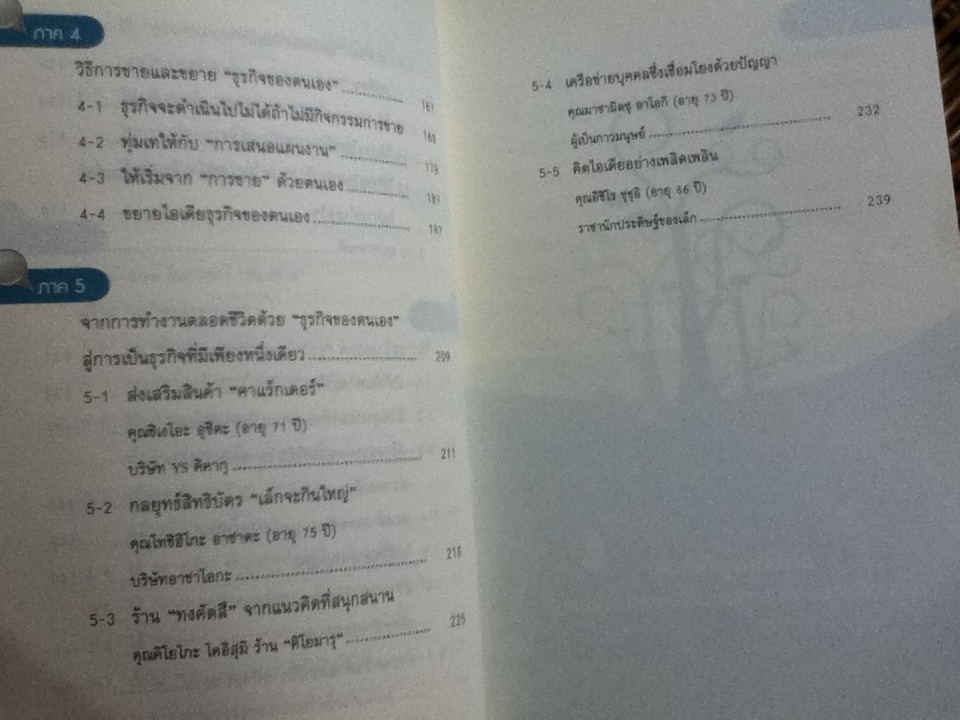 ภาค 4
วิธีการขายและขยาย "ธุรกิจของตนเอง" ............ 167
4-1 ธุรกิจจะดำเนินไปไม่ได้ถ้าไม่มีกิจกรรมการขาย 168
4-2 ทุ่มเทให้กับ "การเสนอแผนงาน" ............ 179
4-3 ให้เริ่มจาก "การขาย" ด้วยตนเอง ............ 189
4-4 ขยายไอเดียธุรกิจของตนเอง ............ 197
ภาค 5
จากการทำงานตลอดชีวิตด้วย "ธุรกิจของตนเอง"
สู่การเป็นธุรกิจที่มีเพียงหนึ่งเดียว ............ 209
5-1 ส่งเสริมสินค้า "คาแร็กเตอร์"
คุณชิเงโอะ อุชิดะ (อายุ 71 ปี)
บริษัท YS คิคากุ ............ 211
5-2 กลยุทธ์สิทธิบัตร "เล็กจะกินใหญ่"
คุณโทชิฮิโกะ อาซาดะ (อายุ 75 ปี)
บริษัทอาซาโอกะ ............ 218
5-3 ร้าน "ทงคัตสึ" จากแนวคิดที่สนุกสนาน
คุณคิโยโกะ โคอิสุมิ ร้าน "คิโยมารุ" ............ 225
5-4 เครือข่ายบุคคลซึ่งเชื่อมโยงด้วยปัญญา
คุณมาซามิตซุ อาโอกิ (อายุ 73 ปี)
ผู้เป็นกาวมนุษย์ ............ 232
5-5 คิดไอเดียอย่างเพลิดเพลิน
คุณอิชิโร ซุซุอิ (อายุ 86 ปี)
ราชานักประดิษฐ์ของเล็ก ............ 239